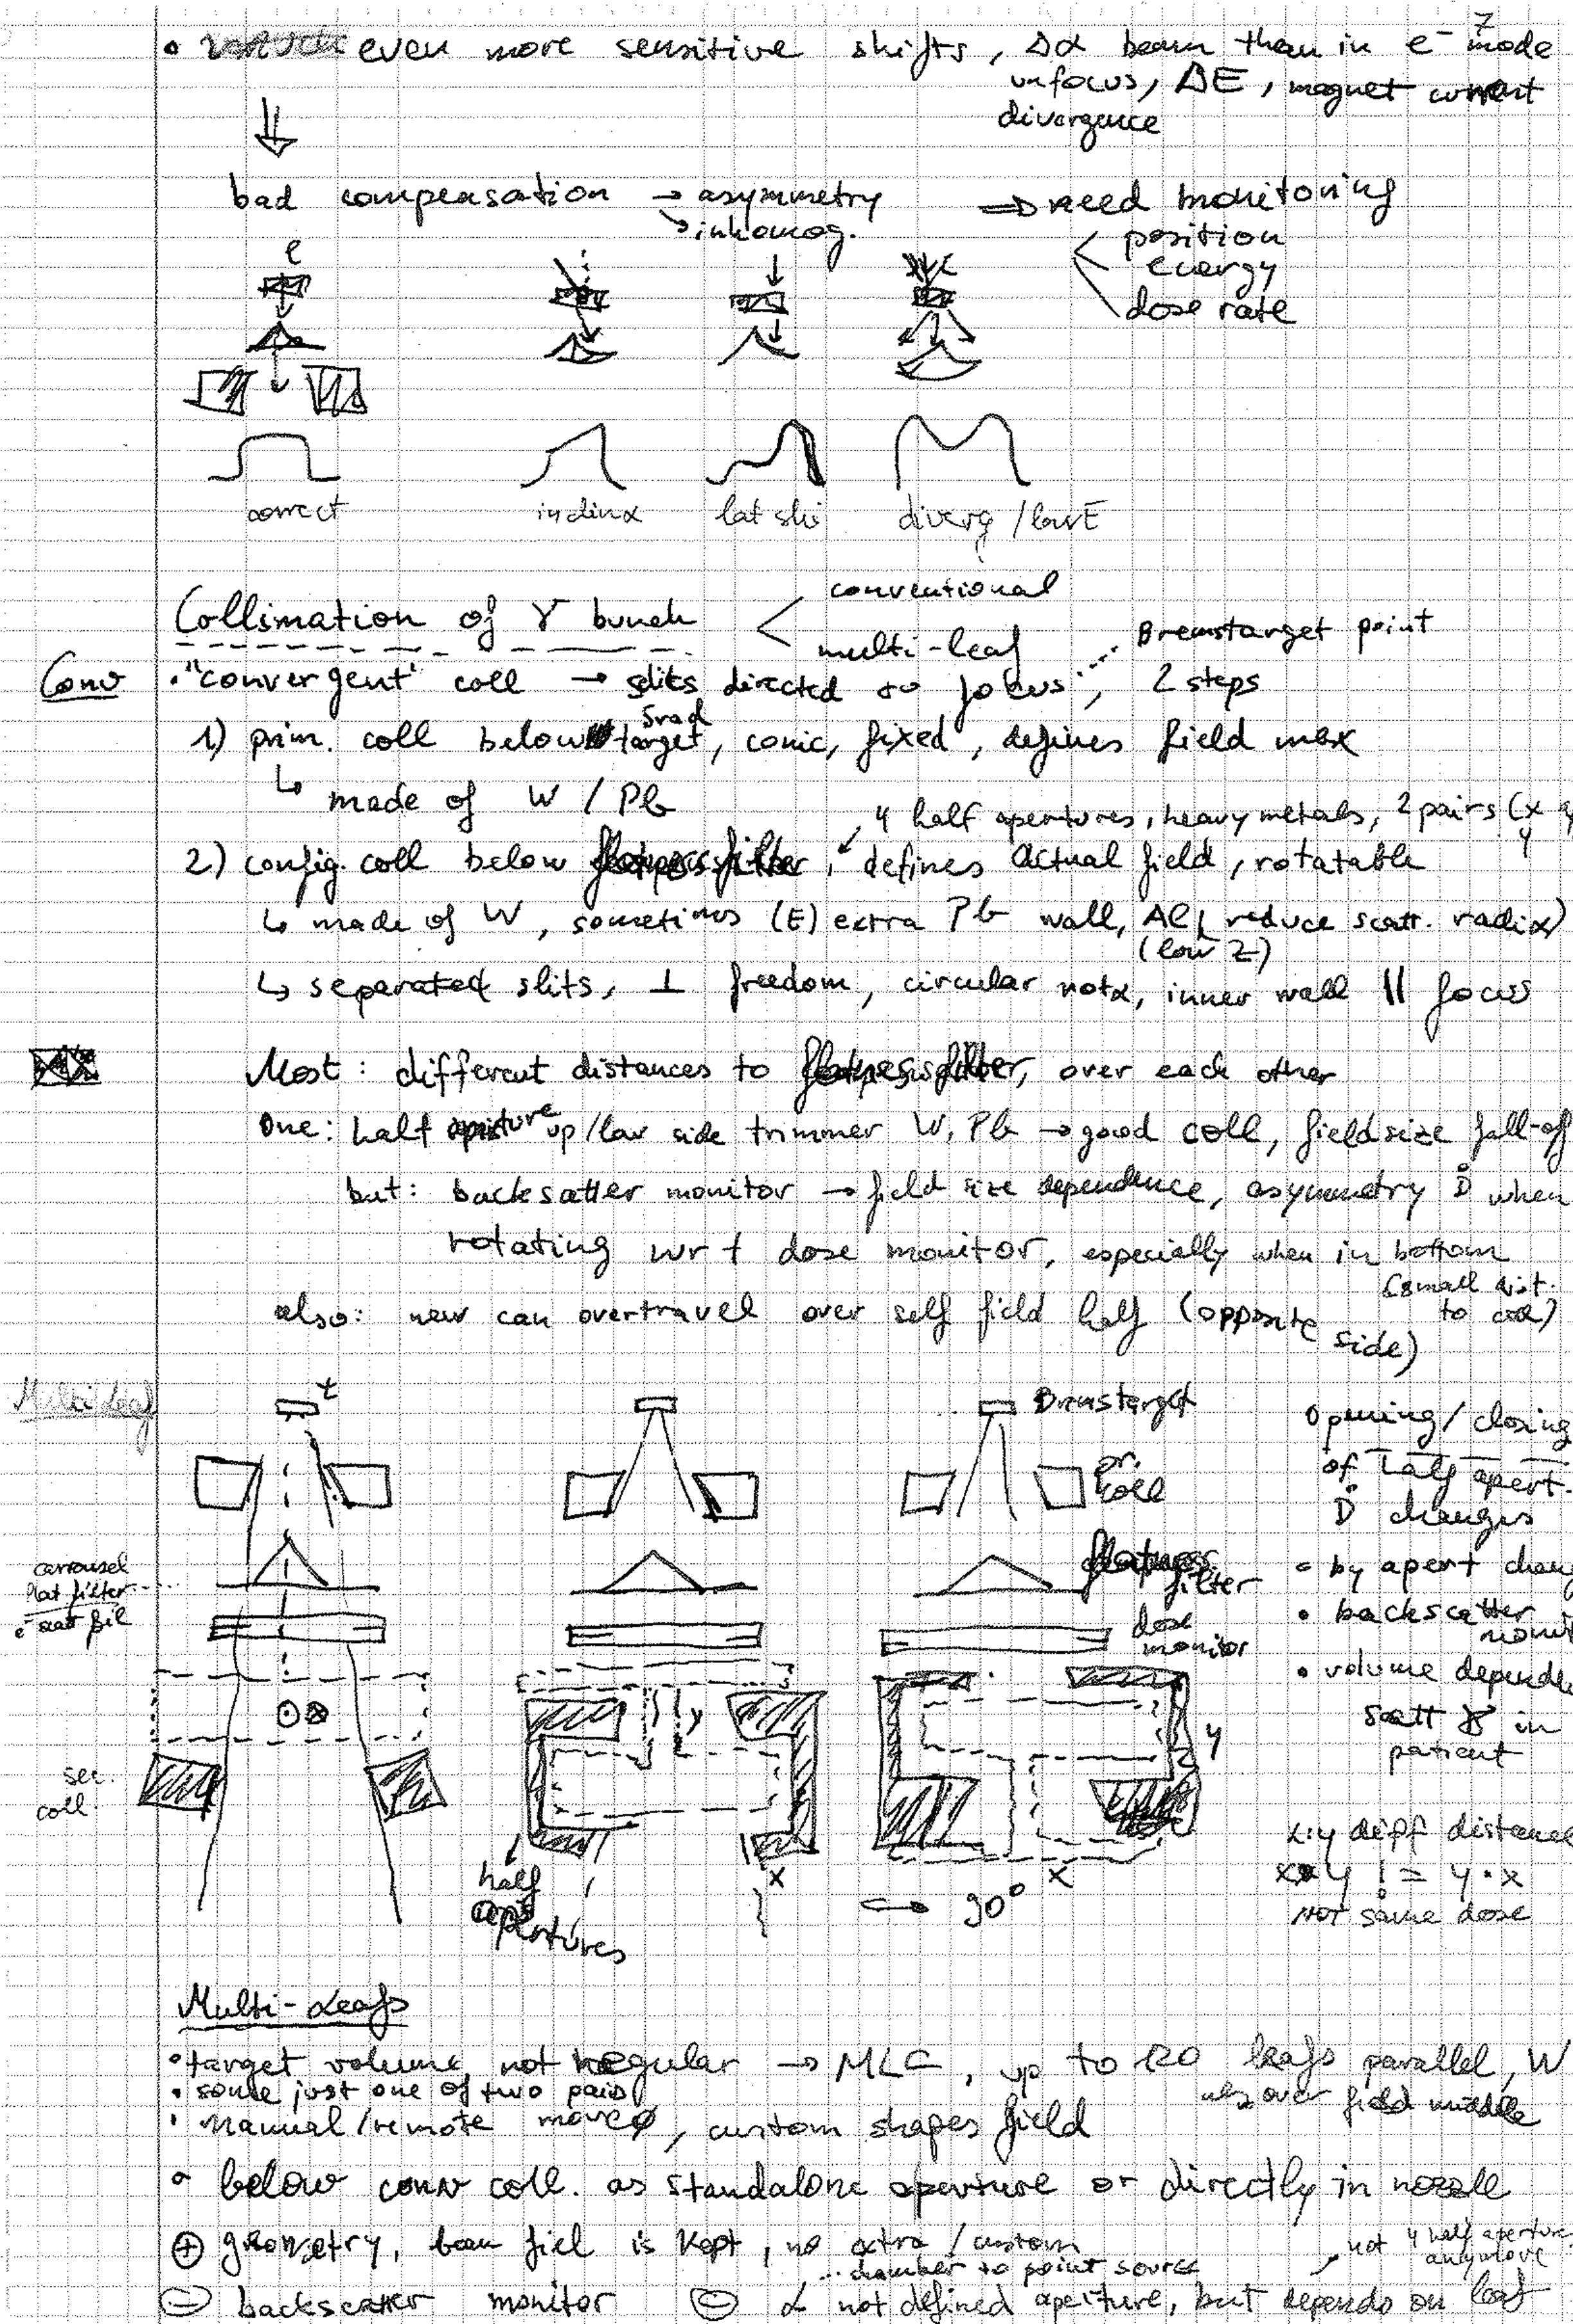 7
• even more sensitive shifts, Δα beam than in e⁻ mode
unfocus, ΔE, magnet current
divergence
⇓
bad compensation → asymmetry ⇒ need monitoring
↘ inhomog.
position
energy
dose rate
e
correct inclinα lat shi diverg / low E
Collimation of γ bunch < conventional
multi-leaf
Bremstarget point
Conv • "convergent" coll → slits directed to focus, 2 steps
1) prim. coll below target, conic, fixed, defines field max
↳ made of W / Pb
4 half apertures, heavy metals, 2 pairs (x
y
2) config. coll below flatness filter, defines actual field, rotatable
↳ made of W, sometimes (E) extra Pb wall, Al, reduce scatt. radiα)
(low Z)
↳ separated slits, ⊥ freedom, circular rotα, inner wall || focus
Most: different distances to flatness filter, over each other
One: half aperture up/low side trimmer W, Pb → good coll, field size fall-off
but: backsatter monitor → field size dependence, asymmetry Ḋ when
rotating wrt dose monitor, especially when in bottom
(small dist.
to coll)
also: new can overtravel over self field half (opposite
side)
Multi Leaf
t
Bremstarget
pr.
coll
flatness
filter
dose
monitor
carrousel
flat filter
e⁻ scatt fil
sec.
coll.
y
x
half
apertures
y
x
→ 90°
Opening / closing
of half apert.
Ḋ changes
• by apert chang
• backscatter
monit
• volume depende
scatt γ in
patient
x,y diff distance
x•y != y•x
NOT same dose
Multi-Leafs
• target volume not regular → MLC, up to 120 leafs parallel, W
• some just one of two pairs
over field middle
• Manual/remote move, custom shapes field
• below conv coll. as standalone aperture or directly in nozzle
⊕ geometry, beam fiel is kept, no extra / custom
chamber to point source
not 4 half aperture
anymore
⊖ backscatter monitor ⊖ α not defined aperture, but depends on leaf